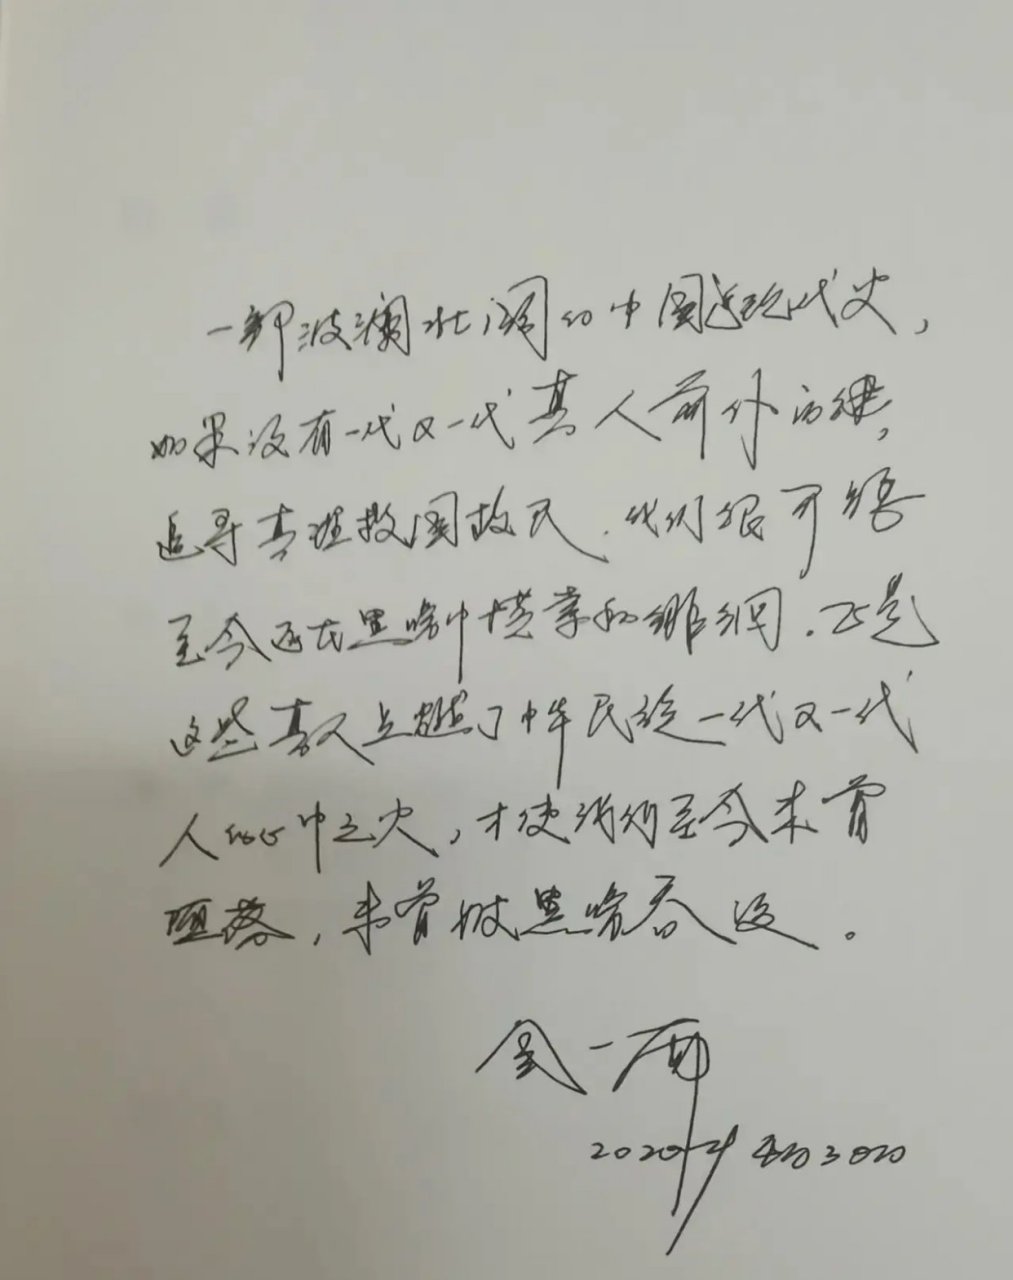 一部波澜壮阔的中国近现代史，
如果没有一代又一代真人前仆后继，
追寻真理救国救民，我们很可能
至今还在黑暗中摸索和徘徊。正是
这些真人点燃了中华民族一代又一代
人的心中之火，才使我们至今未曾
堕落，未曾被黑暗吞没。
金一南
2020年 月30日